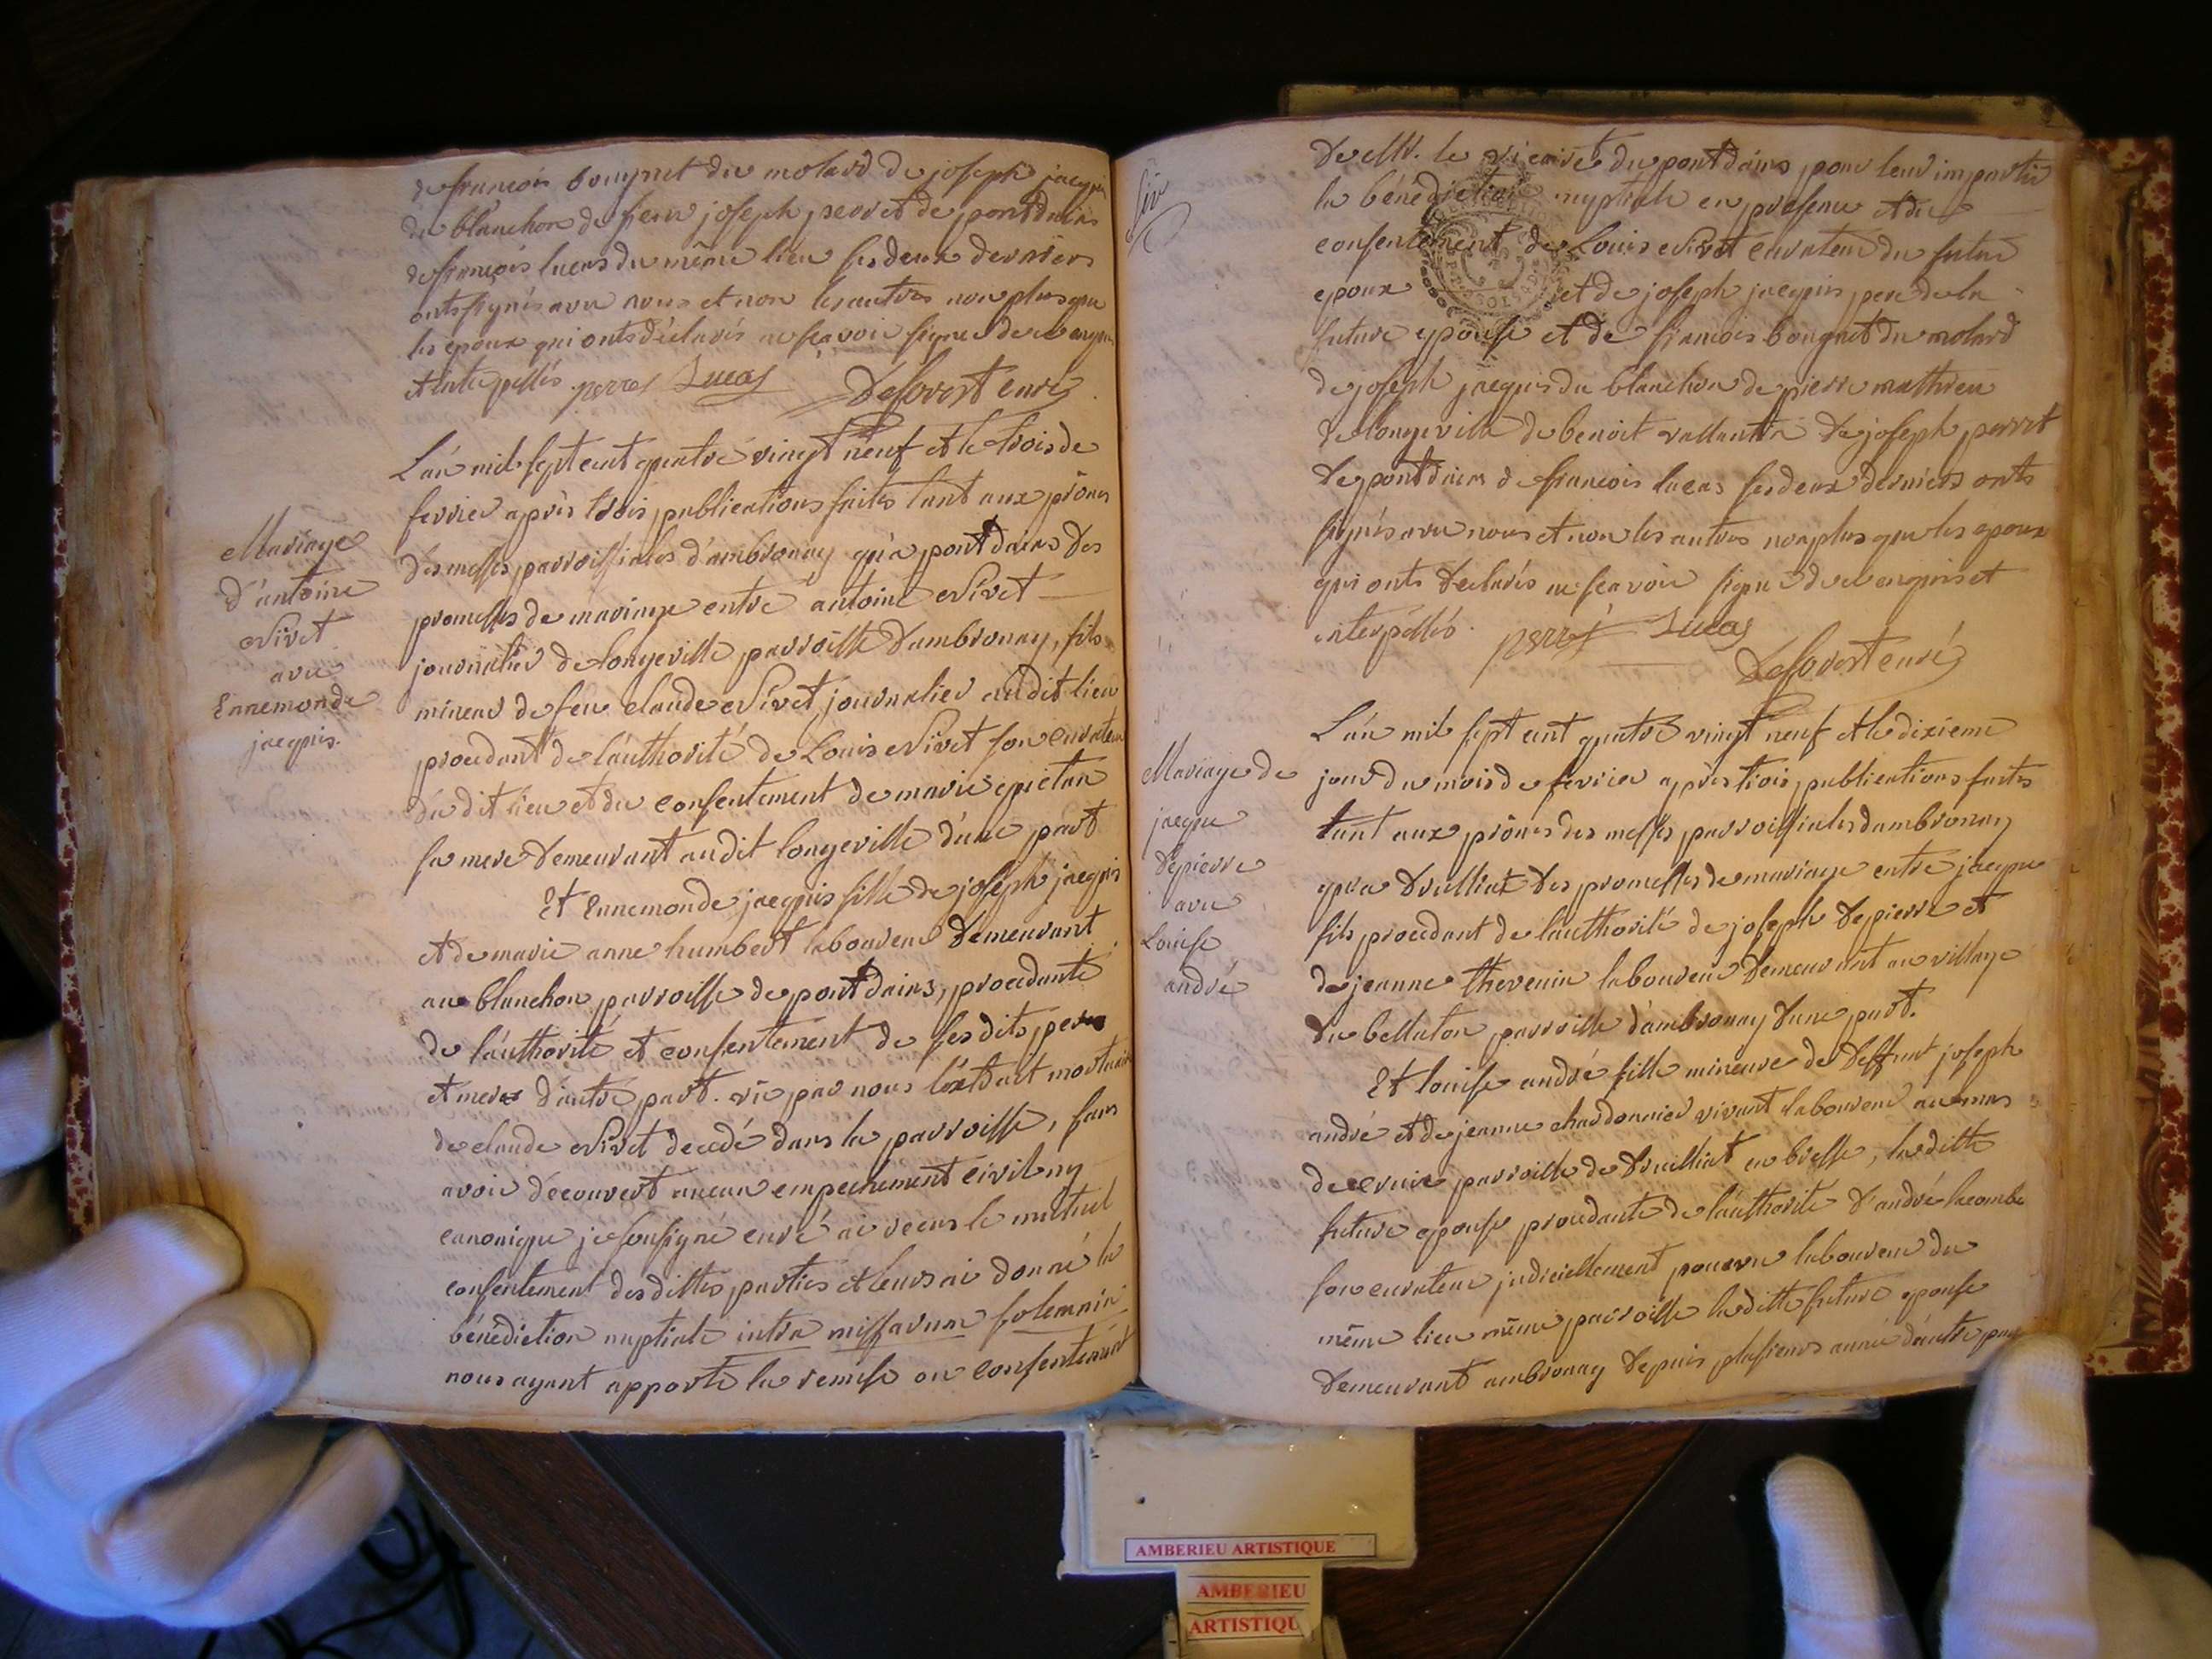 de françois bouquet du molard de joseph jacquis
du blanchon de feu joseph perret de pontdains
de françois lucas du même lieu ses deux derniers
onts signés avec nous et non les autres non plus que
les epoux qui onts déclarés ne sçavoir signer de ce enquis
et interpellés perret Lucas Deforest curé
Mariage
d'antoine
Nivet
avec
Ennemonde
jacquis.
L'an mil sept cent quatre vingt neuf et le trois de
fevrier après trois publications faites tant aux prônes
des messes parroissiales d'ambronay qu'a pontdains des
promesses de mariage entre antoine Nivet
journalier de longeville parroisse d'ambronay, fils
mineur de feu claude Nivet, journalier audit lieu
procedant de l'authorité de Louis Nivet son curateur
du dit lieu et du consentement de marie
sa mere demeurant audit longeville d'une part
Et Ennemonde jacquis fille de joseph jacquis
et de marie anne humbert laboureur demeurant
au blanchon parroisse de pont dains, procedante
de l'authorité et consentement de ses dits pere
et mere d'autre part. vû par nous l'extrait mortuaire
de claude Nivet decedé dans la parroisse, sans
avoir découvert aucun empechement civil ny
canonique je soussigné curé ai recus le mutuel
consentement des dittes parties et leurs ai donné la
bénédiction nuptiale intra missarum solemnia
nous ayant apporté la remise ou consentement
de Mr. le vicaire du pontdains pour leur impartir
la bénédiction nuptiale en presence et du
consentement de Louis Nivet curateur du futur
epoux et de joseph jacquis pere de la
future epouse et de françois bouquet du molard
de joseph jacquis du blanchon de pierre mathieu
de longeville de benoit vallantin de joseph perret
de pontdains de françois lucas ses deux derniers onts
signés avec nous et non les autres non plus que les epoux
qui onts declarés ne sçavoir signer de ce enquis et
interpellés. perret Lucas
Deforest curé
Mariage de
jacque
depierre
avec
Louise
andré
L'an mil sept cent quatre vingt neuf et le dixieme
jour du mois de fevrier après trois publications faites
tant aux prônes des messes parroissiales d'ambronay
qu'a druilliat des promesses de mariage entre jacque
fils procedant de l'authorité de joseph depierre et
de jeanne thevenin laboureur demeurant au village
du bellaton parroisse d'ambronay d'une part.
Et louise andré fille mineure de deffunt joseph
andré et de jeanne chardonnier vivant laboureur au mas
de parroisse de druilliat en bresse, laditte
future epouse procedante de l'authorité d'andré lacombe
son curateur judiciellement pourvu laboureur du
même lieu même parroisse laditte future epouse
demeurant ambronay depuis plusieurs année d'autre part